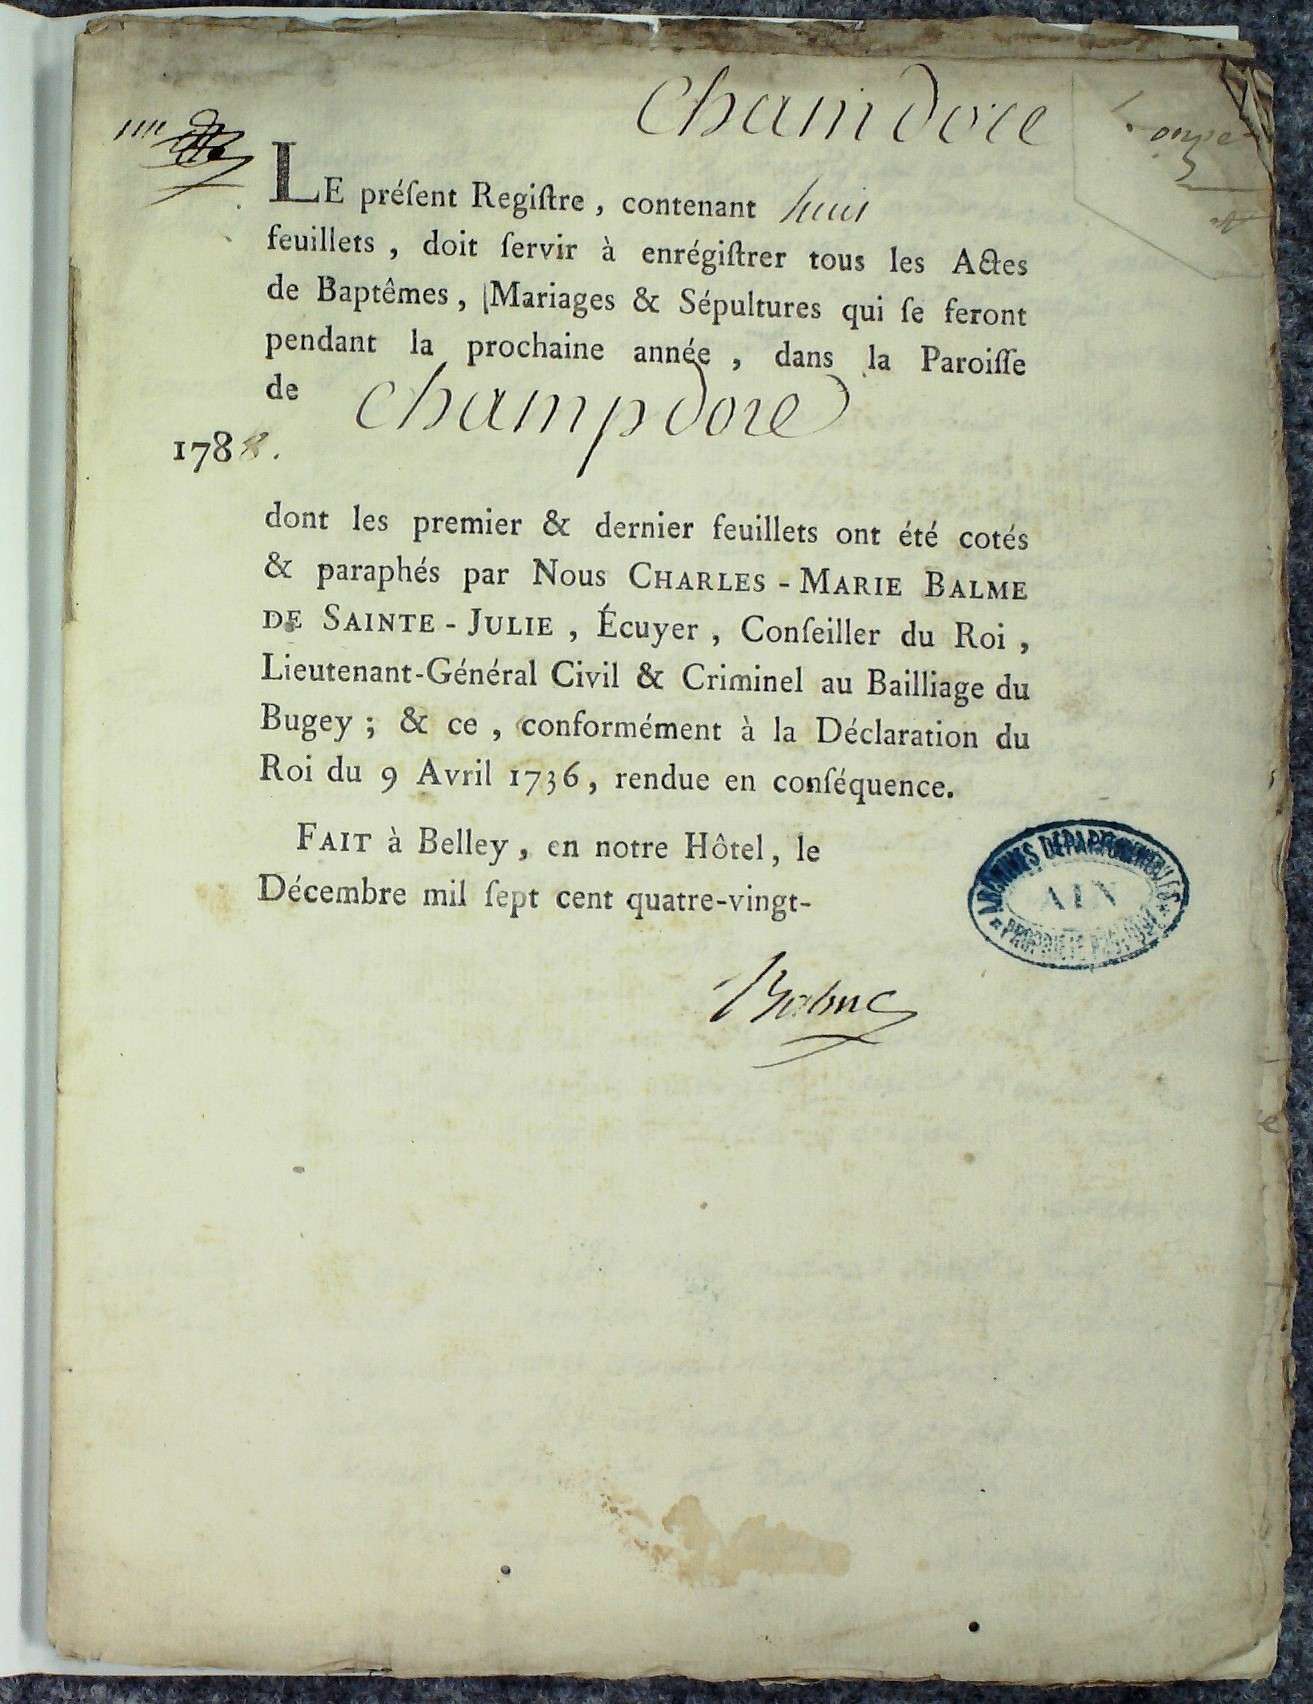 Chamdore
LE préſent Regiſtre, contenant huit
feuillets, doit ſervir à enrégiſtrer tous les Actes
de Baptêmes, Mariages & Sépultures qui ſe feront
pendant la prochaine année, dans la Paroiſſe
de Champdore
1788.
dont les premier & dernier feuillets ont été cotés
& paraphés par Nous CHARLES-MARIE BALME
DE SAINTE-JULIE, Écuyer, Conſeiller du Roi,
Lieutenant-Général Civil & Criminel au Bailliage du
Bugey; & ce, conformément à la Déclaration du
Roi du 9 Avril 1736, rendue en conſéquence.
FAIT à Belley, en notre Hôtel, le
Décembre mil ſept cent quatre-vingt-
ARCHIVES DEPARTEMENTALES
AIN
PROPRIETE PUBLIQUE
Balme